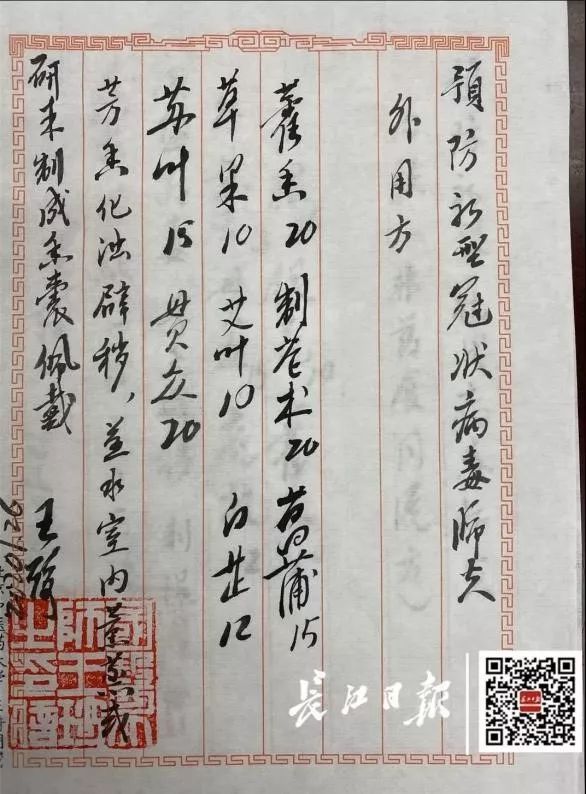 预防新型冠状病毒肺炎
外用方
藿香20 制苍术20 菖蒲15
草果10 艾叶10 白芷12
苏叶15 贯众20
芳香化浊辟秽，煮水室内熏蒸或
研末制成香囊佩戴 王琦
2020.1.26
长江日报